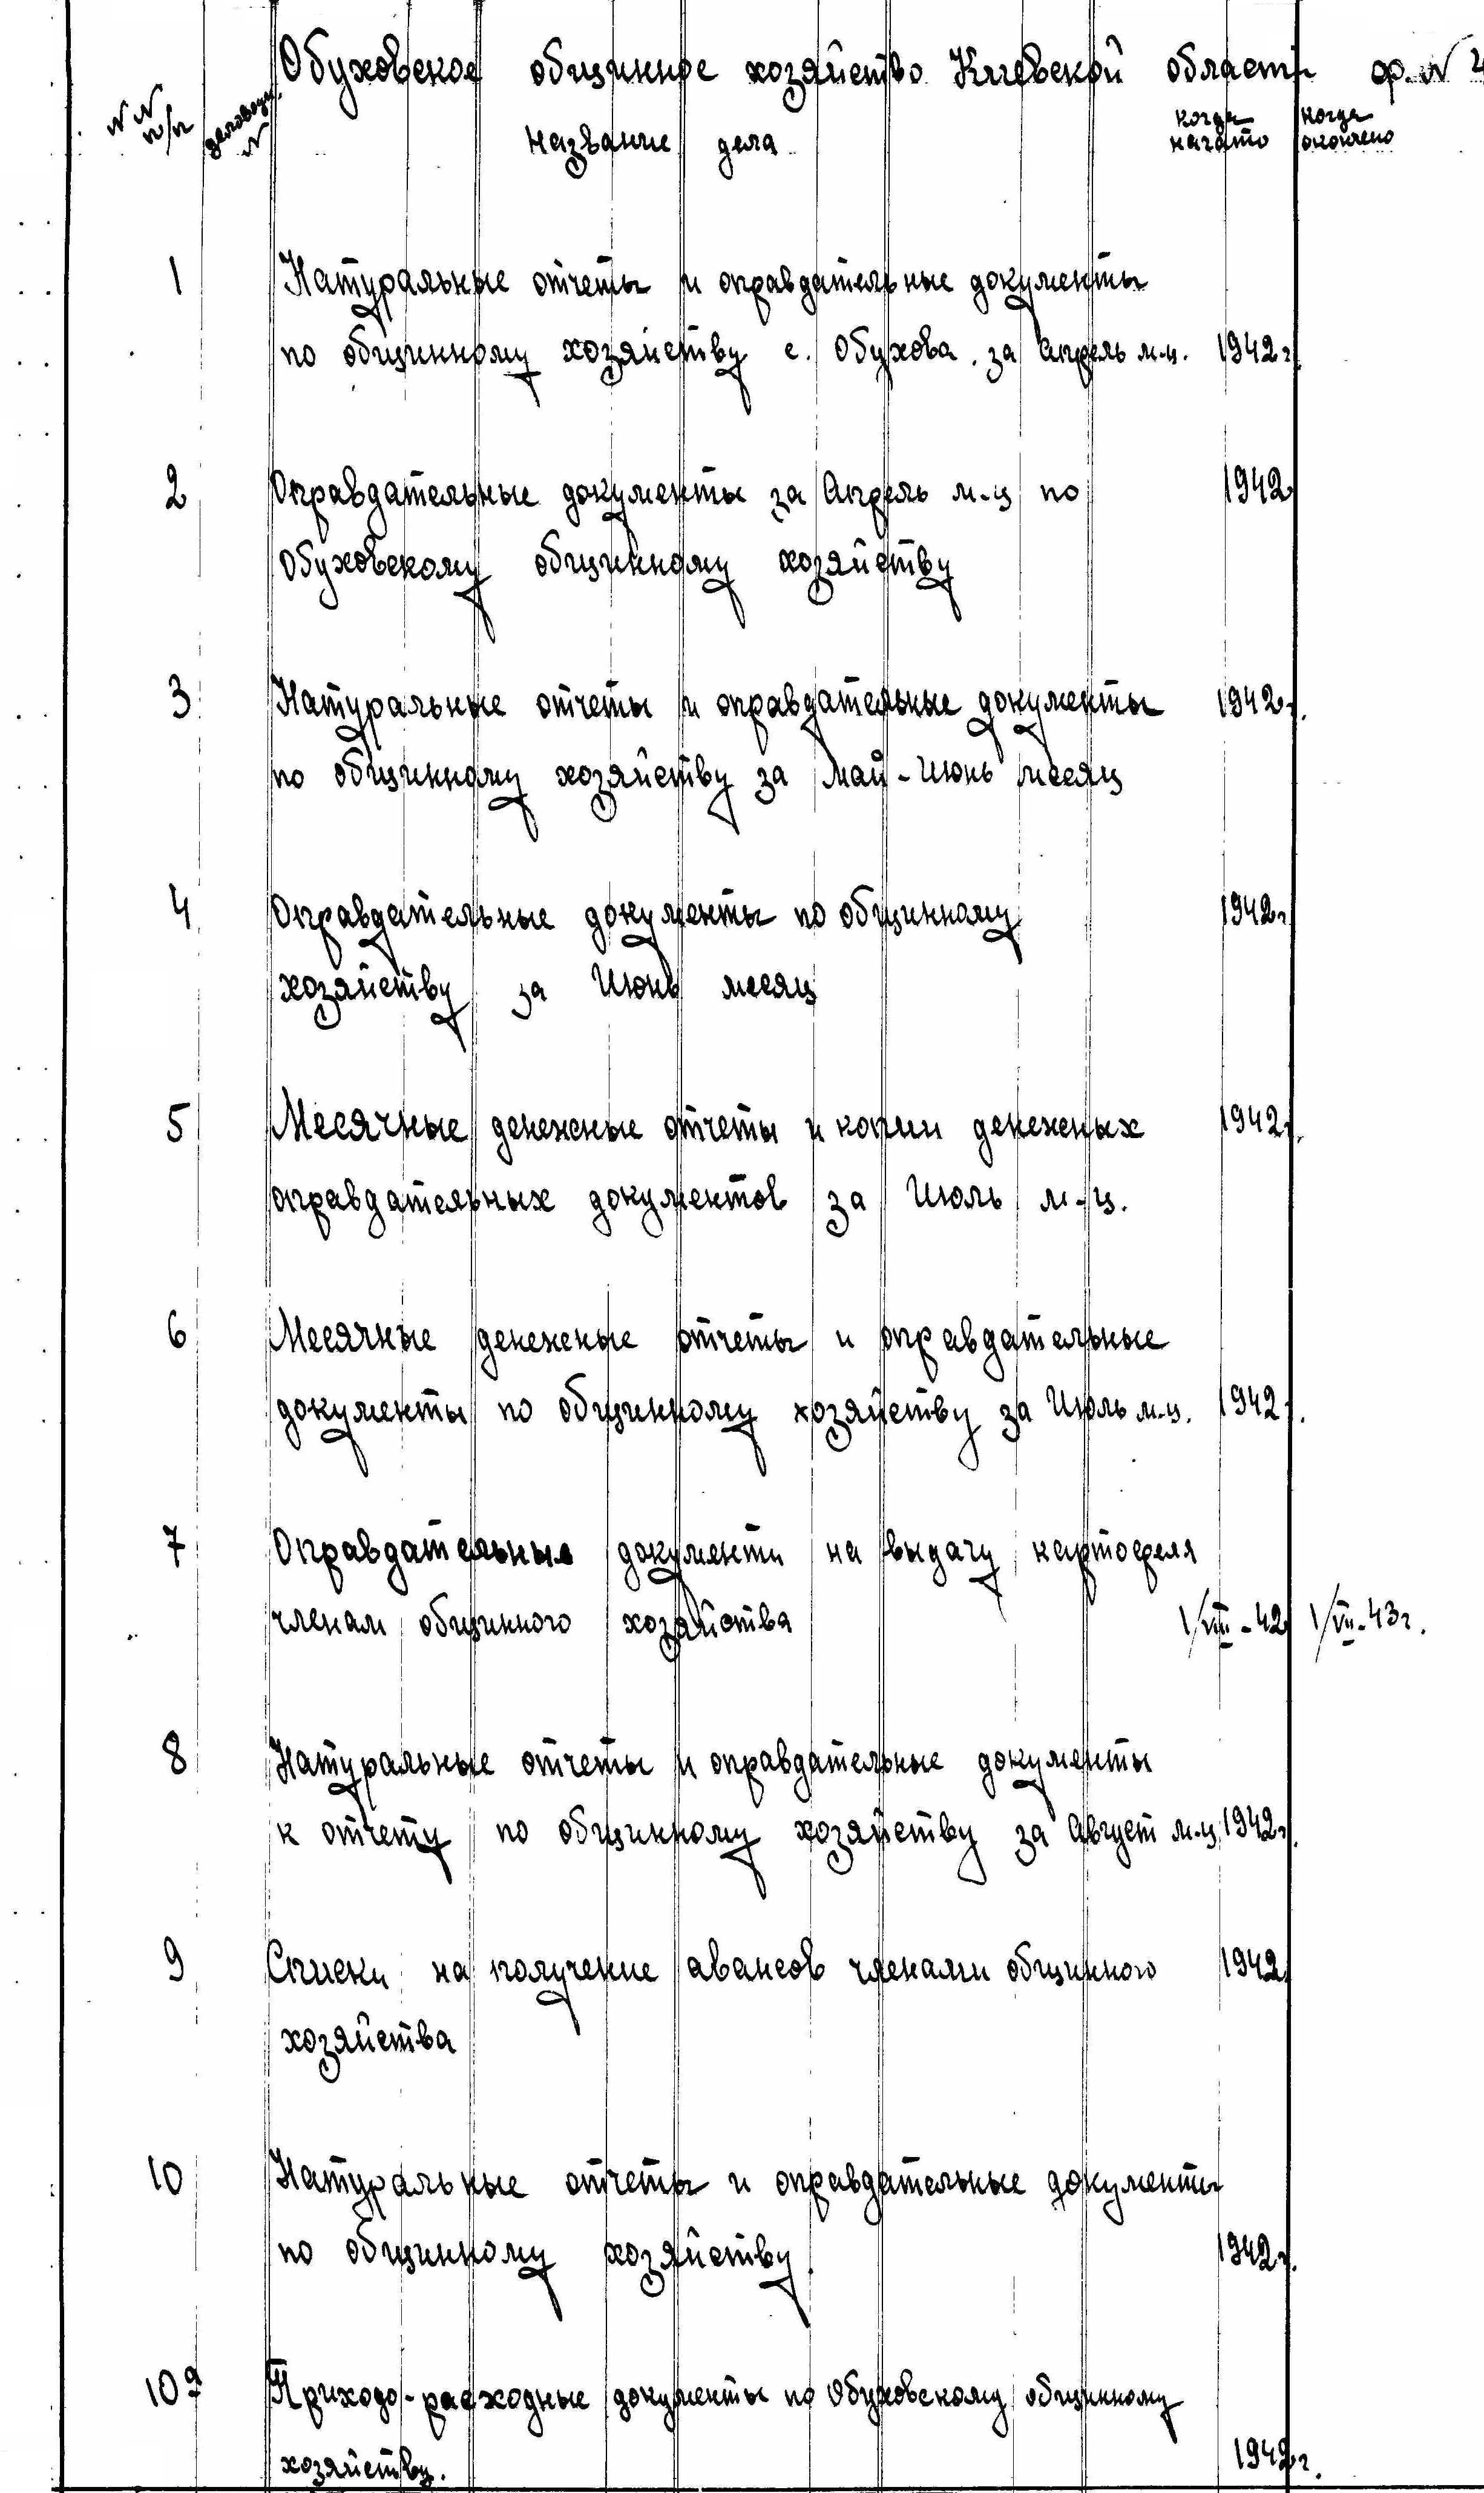 Обуховское общинное хозяйство Киевской области ф. №
№№ п/п № Название дела когда начато когда окончено
1 Натуральные отчеты и оправдательные документы
по общинному хозяйству с. Обухова за Апрель м-ц. 1942г.
2 Оправдательные документы за Апрель м-ц по 1942
Обуховскому общинному хозяйству
3 Натуральные отчеты и оправдательные документы 1942г.
по общинному хозяйству за Май-Июнь месяц
4 Оправдательные документы по общинному 1942г
хозяйству за Июнь месяц
5 Месячные денежные отчеты и копии денежных 1942г.
оправдательных документов за Июль м-ц.
6 Месячные денежные отчеты и оправдательные
документы по общинному хозяйству за Июль м-ц. 1942г.
7 Оправдательные документи на выдачу картофеля
членам общинного хозяйства 1/VIII-42 1/VII-43г.
8 Натуральные отчеты и оправдательные документы
к отчету по общинному хозяйству за Август м-ц 1942г.
9 Списки на получение авансов членами общинного 1942
хозяйства
10 Натуральные отчеты и оправдательные документы
по общинному хозяйству 1942г.
10а Приходо-расходные документы по Обуховскому общинному
хозяйству. 1942г.